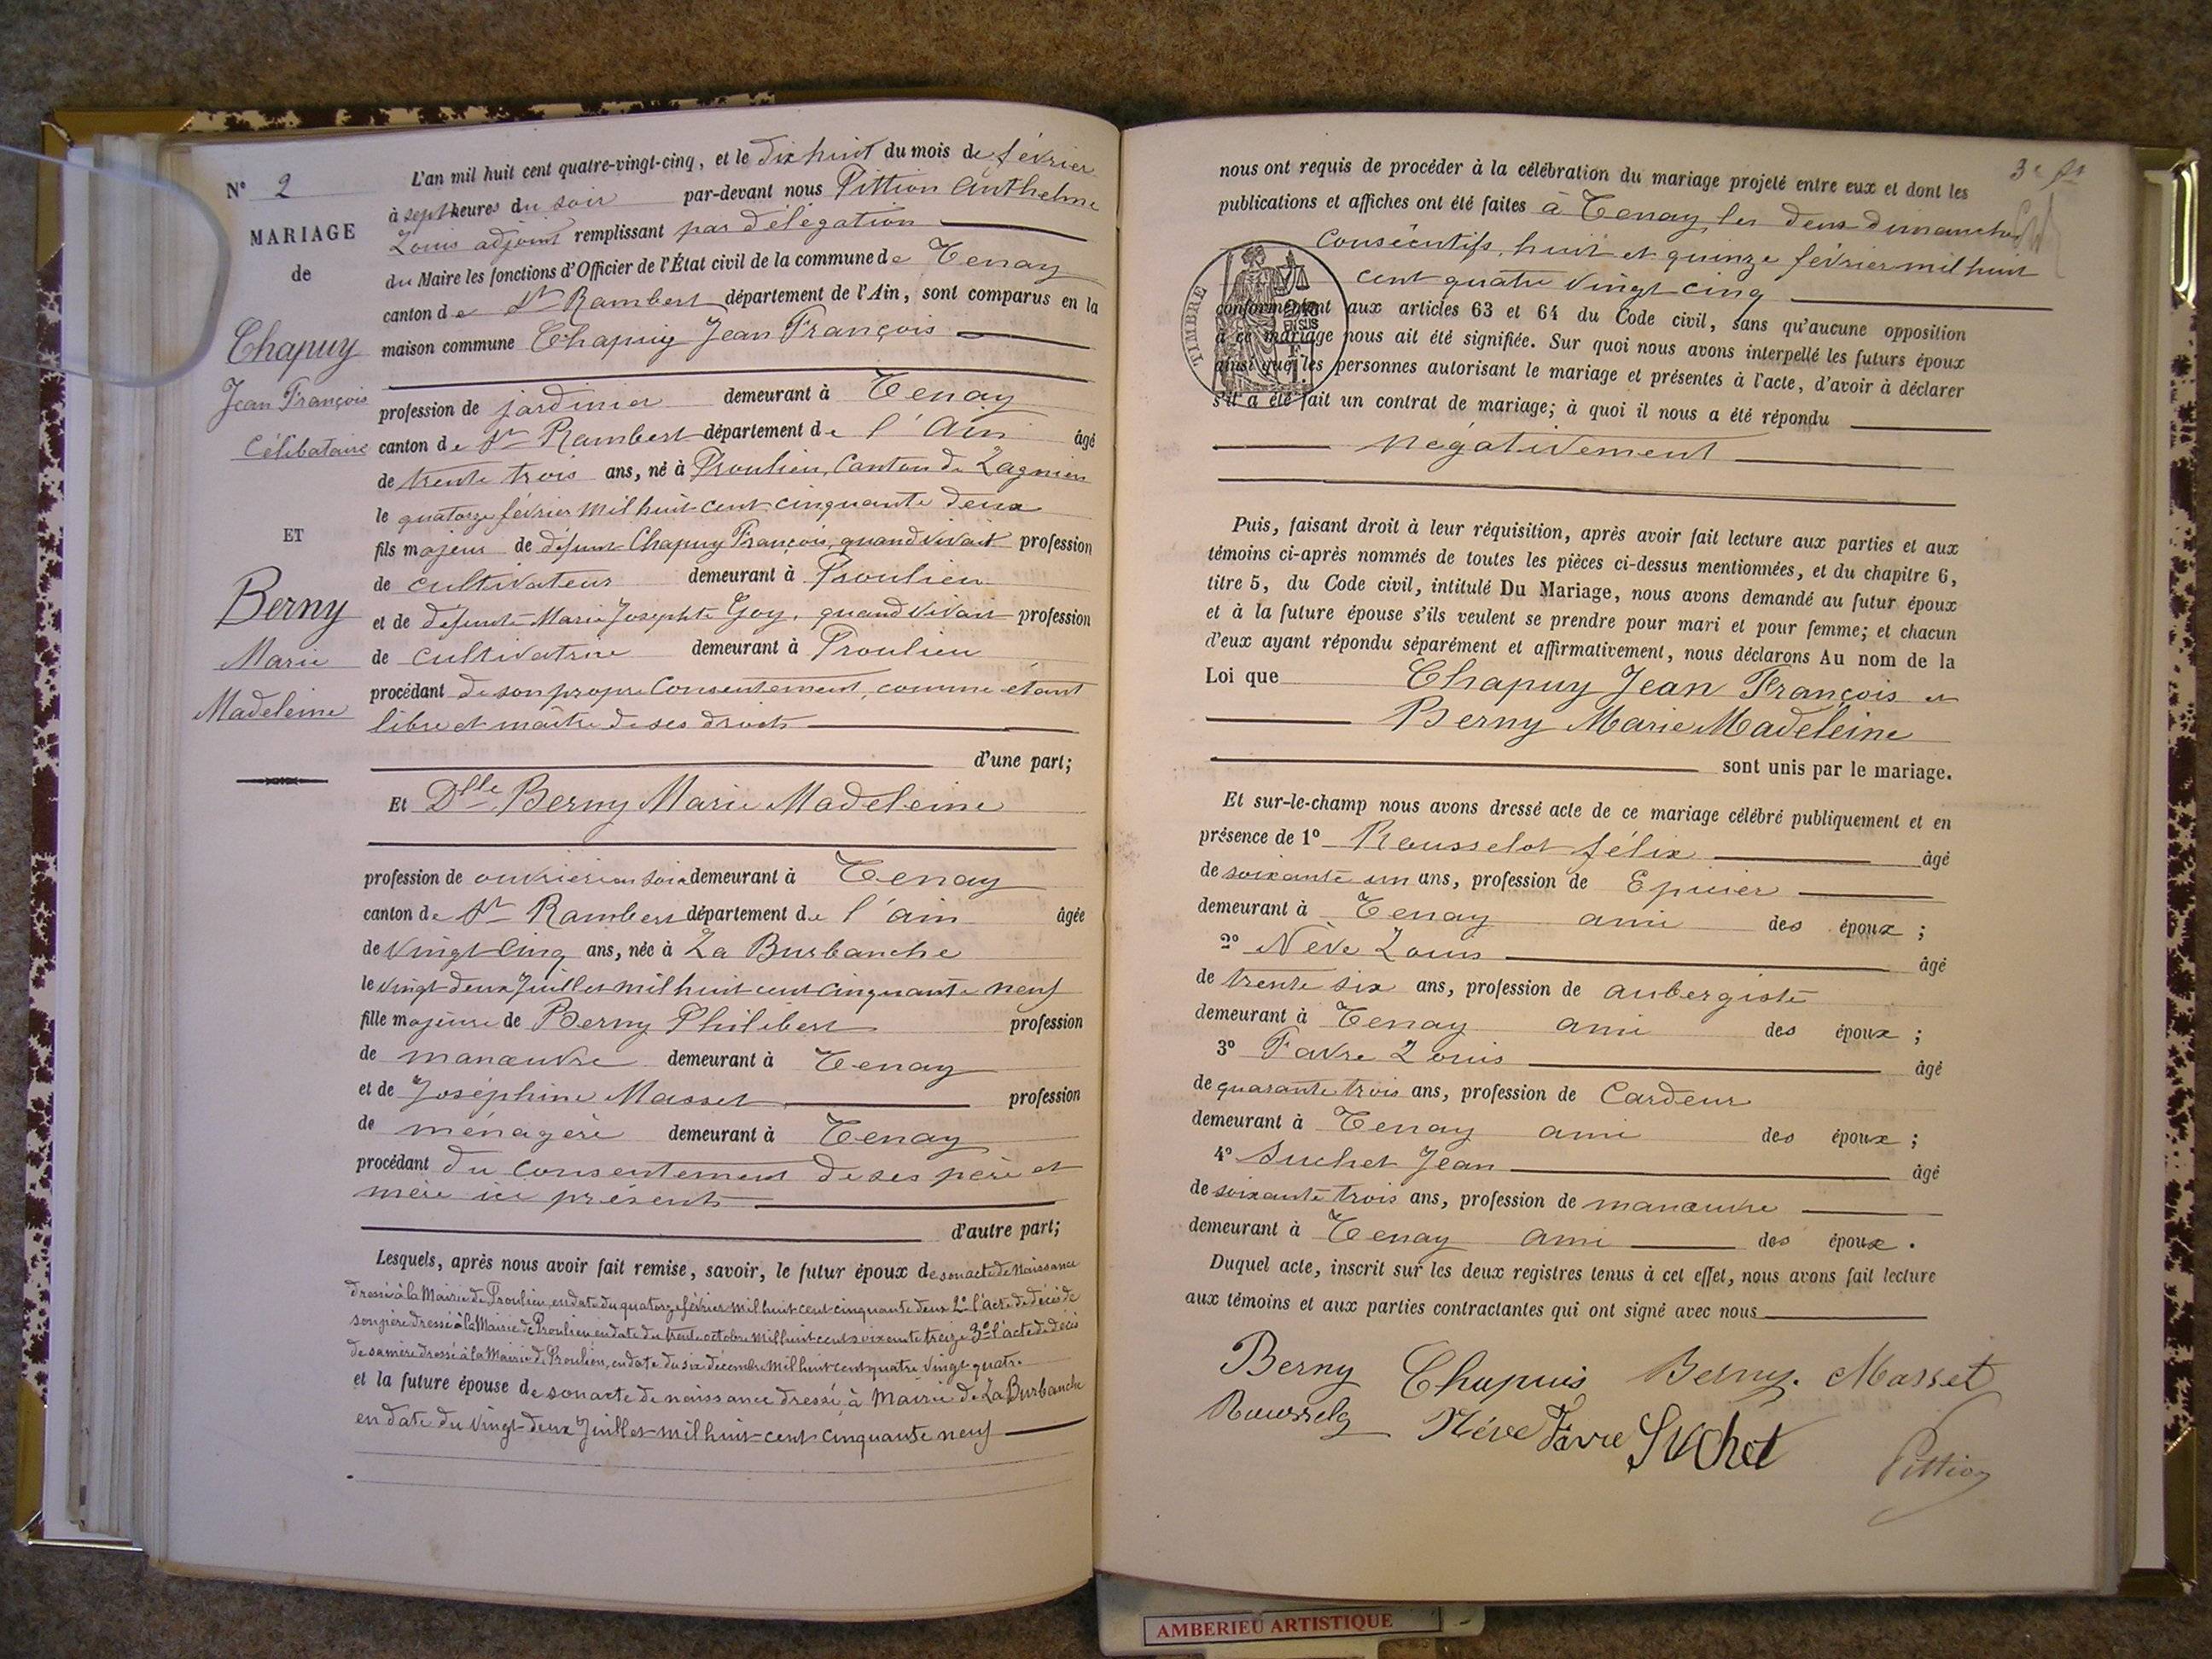 N° 2
MARIAGE
de
Chapuy
Jean François
Célibataire
ET
Berny
Marie
Madeleine
L'an mil huit cent quatre-vingt-cinq, et le dix huit du mois de février
à sept heures du soir par-devant nous Pittion Anthelme
Louis adjoint remplissant par délégation
du Maire les fonctions d'Officier de l'État civil de la commune de Tenay
canton de St Rambert département de l'Ain, sont comparus en la
maison commune Chapuy Jean François
profession de jardinier demeurant à Tenay
canton de St Rambert département de l'Ain âgé
de trente trois ans, né à Proulieu, Canton de Lagnieu
le quatorze février mil huit cent cinquante deux
fils majeur de défunt Chapuy François, quand vivait profession
de cultivateur demeurant à Proulieu
et de défunte Marie Josephte Goy, quand vivait profession
de cultivatrice demeurant à Proulieu
procédant de son propre Consentement, comme étant
libre et maître de ses droits
d'une part;
Et Dlle Berny Marie Madeleine
profession de ouvrière en soie demeurant à Tenay
canton de St Rambert département de l'ain âgée
de Vingt Cinq ans, née à La Burbanche
le vingt-deux Juillet mil huit cent cinquante neuf
fille majeure de Berny Philibert profession
de manœuvre demeurant à Tenay
et de Joséphine Masset profession
de ménagère demeurant à Tenay
procédant du consentement de ses père et
mère ici présents
d'autre part;
Lesquels, après nous avoir fait remise, savoir, le futur époux de son acte de Naissance
dressé à la Mairie de Proulieu, en date du quatorze février mil huit cent cinquante deux 2° l'acte de décès de
son père dressé à la Mairie de Proulieu en date du trente octobre mil huit cent soixante treize 3° l'acte de décès
de sa mère dressé à la Mairie de Proulieu, en date du six décembre mil huit cent quatre vingt quatre
et la future épouse de son acte de naissance dressé à Mairie de La Burbanche
en date du vingt-deux Juillet mil huit cent cinquante neuf
nous ont requis de procéder à la célébration du mariage projeté entre eux et dont les
publications et affiches ont été faites à Tenay, les deux dimanches
Consécutifs, huit et quinze février mil huit
cent quatre vingt cinq
TIMBRE
conformément aux articles 63 et 64 du Code civil, sans qu'aucune opposition
à ce mariage nous ait été signifiée. Sur quoi nous avons interpellé les futurs époux
ainsi que les personnes autorisant le mariage et présentes à l'acte, d'avoir à déclarer
s'il a été fait un contrat de mariage; à quoi il nous a été répondu
négativement
Puis, faisant droit à leur réquisition, après avoir fait lecture aux parties et aux
témoins ci-après nommés de toutes les pièces ci-dessus mentionnées, et du chapitre 6,
titre 5, du Code civil, intitulé Du Mariage, nous avons demandé au futur époux
et à la future épouse s'ils veulent se prendre pour mari et pour femme; et chacun
d'eux ayant répondu séparément et affirmativement, nous déclarons Au nom de la
Loi que Chapuy Jean François et
Berny Marie Madeleine
sont unis par le mariage.
Et sur-le-champ nous avons dressé acte de ce mariage célébré publiquement et en
présence de 1° Rousselot félix âgé
de soixante un ans, profession de Epicier
demeurant à Tenay ami des époux ;
2° Nève Louis âgé
de trente six ans, profession de aubergiste
demeurant à Tenay ami des époux ;
3° Favre Louis âgé
de quarante trois ans, profession de Cardeur
demeurant à Tenay ami des époux ;
4° Suchet Jean âgé
de soixante trois ans, profession de manœuvre
demeurant à Tenay ami des époux .
Duquel acte, inscrit sur les deux registres tenus à cet effet, nous avons fait lecture
aux témoins et aux parties contractantes qui ont signé avec nous
Berny Chapuis Berny. Masset
Néve Favre Suchet
Pittion
AMBERIEU ARTISTIQUE